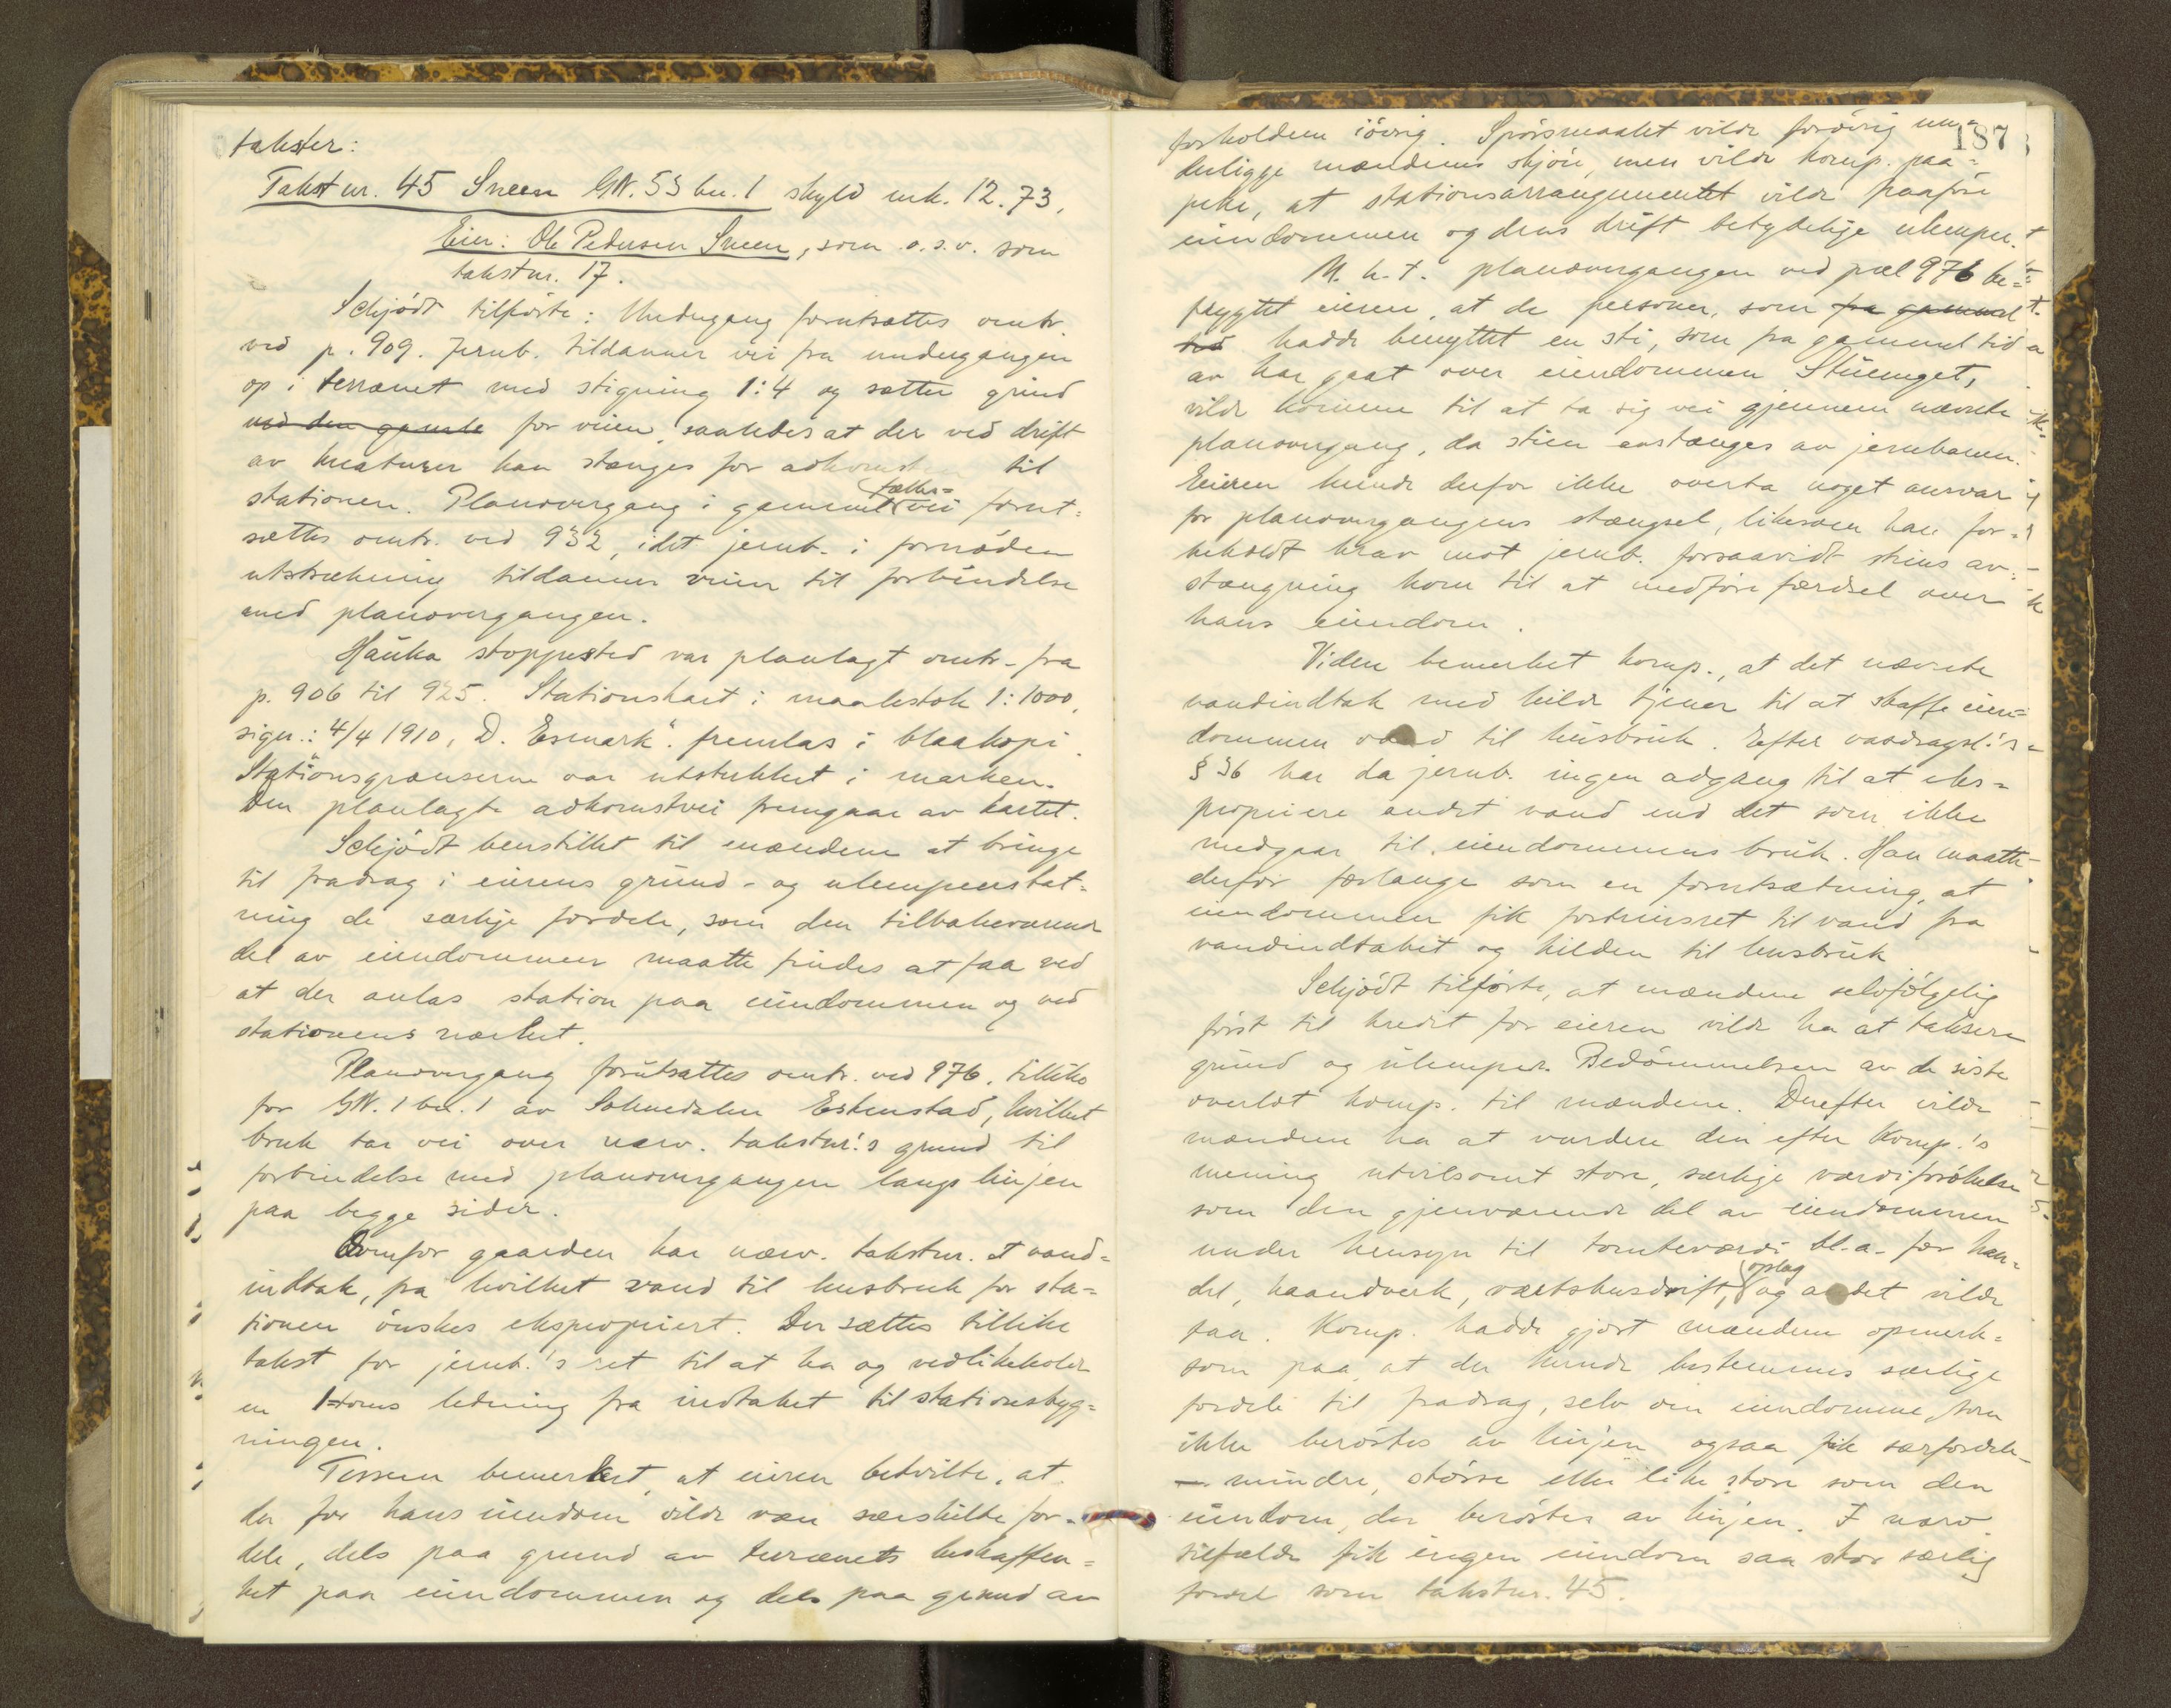 takster:
Takst nr. 45 Sneen GN. 53 bn. 1 skyld mk. 12.73,
Eier: Ole Pedersen Sneen, som o.s.v. som
takst nr. 17.
Schjødt tilførte: Undergang forutsættes omtr.
ved p. 909. Jernb. tildanner vei fra undergangen
op i terrænet med stigning 1:4 og sætter grind
ved den gamle for veien, saaledes at der ved drift
av kreaturer kan stænges for adkomsten til
stationen. Planovergang i gammel fælles=
vei forut=
sættes omtr. ved 932, idet jernb. i fornøden
utstrækning tildanner veien til forbindelse
med planovergangen.
Hauka stoppested var planlagt omtr. fra
p. 906 til 925. Stationskart i maalestok 1:1000,
sign.: 4/4 1910, D. Esmark". fremlas i blaakopi.
Stationsgrænserne var utstukket i marken.
Den planlagte adkomstvei fremgaar av kartet.
Schjødt henstillet til mændene at bringe
til fradrag i eierens grund- og ulempeerstat=
ning de særlige fordele, som den tilbakeværende
del av eiendommen maatte findes at faa ved
at der anlas station paa eiendommen og ved
stationens nærhet.
Planovergang forutsættes omtr. ved 976, tillike
for GN. 1 bn. 1 av Soknedalen Estenstad, hvilket
bruk tar vei over nærv. takstnr.'s grund til
forbindelse med planovergangen langs linjen
paa begge sider.
Ovenfor gaarden har nærv. takstnr. et vand=
indtak, fra hvilket vand til husbruk for sta=
tionen ønskes ekspropriert. Der sættes tillike
takst for jernb.'s ret til at ha og vedlikeholde
en 1=toms ledning fra indtaket til stationsbyg=
ningen.
Tessem bemerket, at eieren betvilte, at
der for hans eiendom vilde være særskilte for=
dele, dels paa grund av terrænets beskaffen=
het paa eiendommen og dels paa grund av
187
forholdene iøvrig. Spørsmaalet vilde forøvrig un=
derligge mændenes skjøn, men vilde komp. paa=
peke, at stationsarrangementet vilde paaføre
eiendommen og dens drift betydelige ulemper.
M.h.t. planovergangen ved pæl 976 be=
frygtet eieren, at de personer, som fra gammel
tid hadde benyttet en sti, som fra gammel tid
av har gaat over eiendommen Stuenget,
vilde komme til at ta sig vei gjennem nævnte
planovergang, da stien avstænges av jernbanen.
Eieren kunde derfor ikke overta noget ansvar
for planovergangens stængsel, likesom han for=
beholdt krav mot jernb. forsaavidt stiens av=
stængning kom til at medføre færdsel over
hans eiendom.
Videre bemerket komp., at det nævnte
vandindtak med kilde tjener til at skaffe eien=
dommen vand til husbruk. Efter vasdragsl.'s
§ 36 har da jernb. ingen adgang til at eks=
propriere andet vand end det som ikke
medgaar til eiendommens bruk. Han maatte
derfor forlange som en forutsætning, at
eiendommen fik fortrinsret til vand fra
vandindtaket og kilden til husbruk
Schjødt tilførte, at mændene selvfølgelig
først til kredit for eieren vilde ha at taksere
grund og ulemper. Bedømmelsen av de siste
overlot komp. til mændene. Derefter vilde
mændene ha at vurdere den efter komp.'s
mening utvilsomt store, særlige værdiforøkelse
som den gjenværende del av eiendommen
under hensyn til tomteværdi bl.a. for han=
del, haandverk, værtshusdrift, oplag
og andet vilde
faa. Komp. hadde gjort mændene opmerk=
som paa, at der kunde bestemmes særlige
fordele til fradrag, selv om eiendomme, som
ikke berørtes av linjen ogsaa fik særfordele
– mindre, større eller like store som den
eiendom, der berørtes av linjen. I nærv.
tilfælde fik ingen eiendom saa stor særlig
fordel som takstnr. 45.